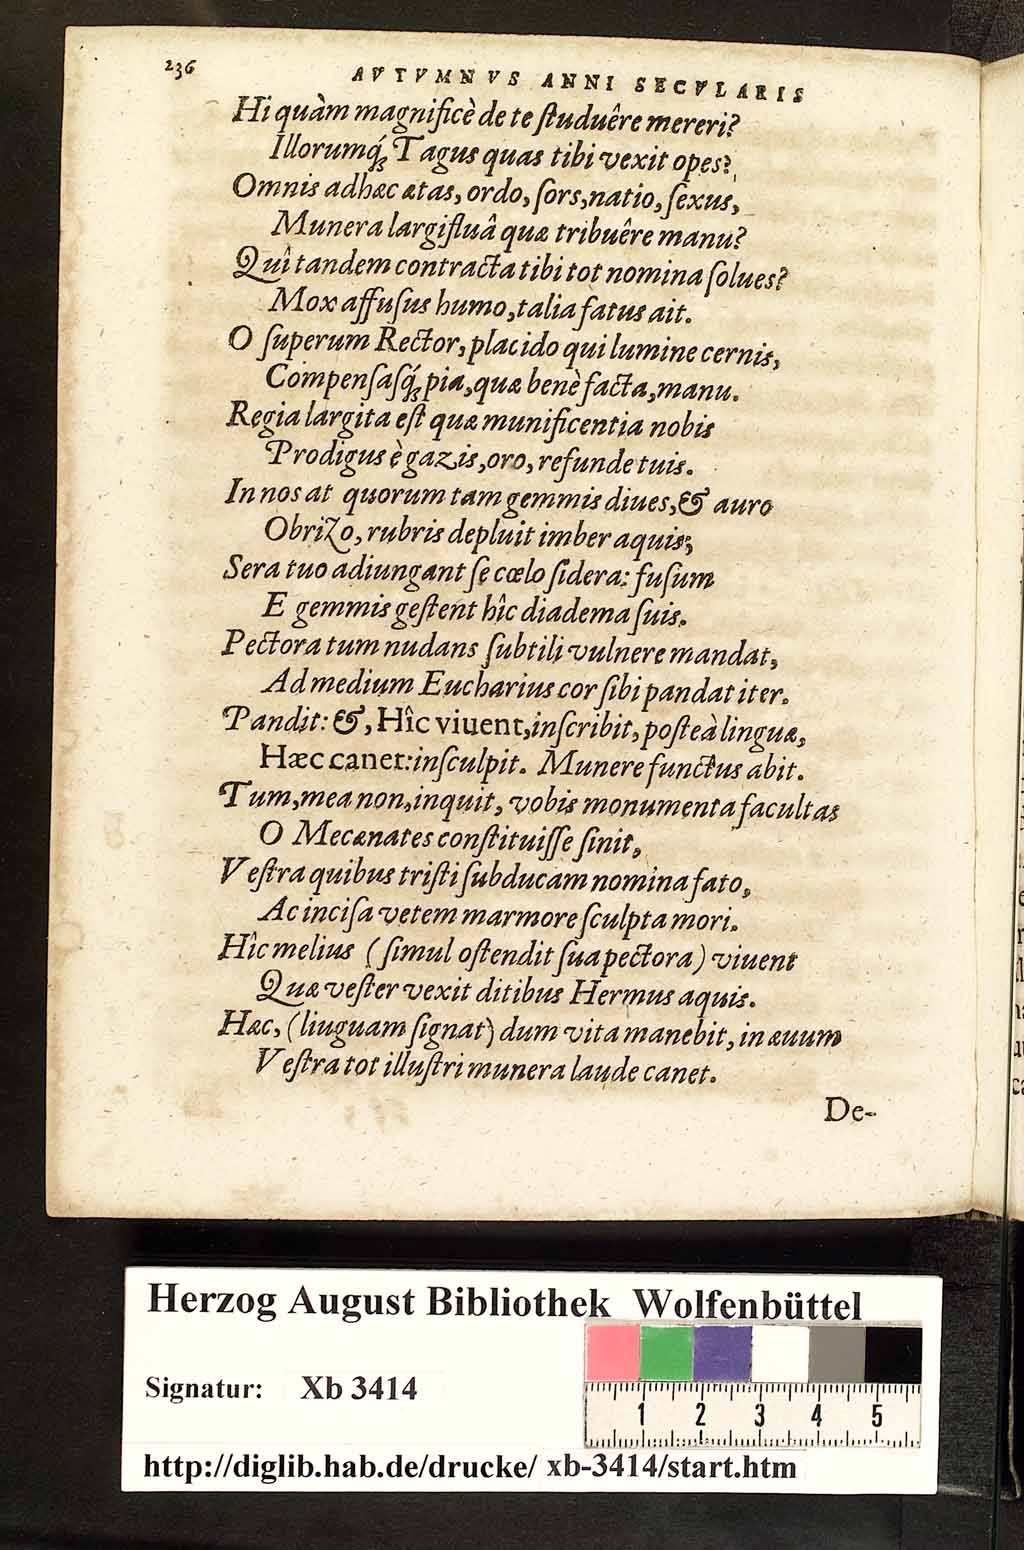 236
AVTVMNVS ANNI SECVLARIS
Hi quàm magnificè de te ſtuduêre mereri?
Illorumq́; Tagus quas tibi vexit opes?
Omnis adhæc ætas, ordo, ſors, natio, ſexus,
Munera largifluâ quæ tribuêre manu?
Quî tandem contracta tibi tot nomina ſolues?
Mox affuſus humo, talia fatus ait.
O ſuperum Rector, placido qui lumine cernis,
Compenſaſq́; pia, quæ benè facta, manu.
Regia largita eſt quæ munificentia nobis
Prodigus è gazis, oro, refunde tuis.
In nos at quorum tam gemmis diues, & auro
Obrizo, rubris depluit imber aquis;
Sera tuo adiungant ſe cœlo ſidera: fuſum
E gemmis geſtent hîc diadema ſuis.
Pectora tum nudans ſubtili vulnere mandat,
Ad medium Eucharius cor ſibi pandat iter.
Pandit: &, Hîc viuent, inſcribit, poſteà linguæ,
Hæc canet: inſculpit. Munere functus abit.
Tum, mea non, inquit, vobis monumenta facultas
O Mecænates conſtituiſſe ſinit,
Veſtra quibus triſti ſubducam nomina fato,
Ac inciſa vetem marmore ſculpta mori.
Hîc melius (ſimul oſtendit ſua pectora) viuent
Quæ veſter vexit ditibus Hermus aquis.
Hæc, (liuguam ſignat) dum vita manebit, in æuum
Veſtra tot illuſtri munera laude canet.
De-
Herzog August Bibliothek Wolfenbüttel
Signatur: Xb 3414
1 2 3 4 5
http://diglib.hab.de/drucke/ xb-3414/start.htm